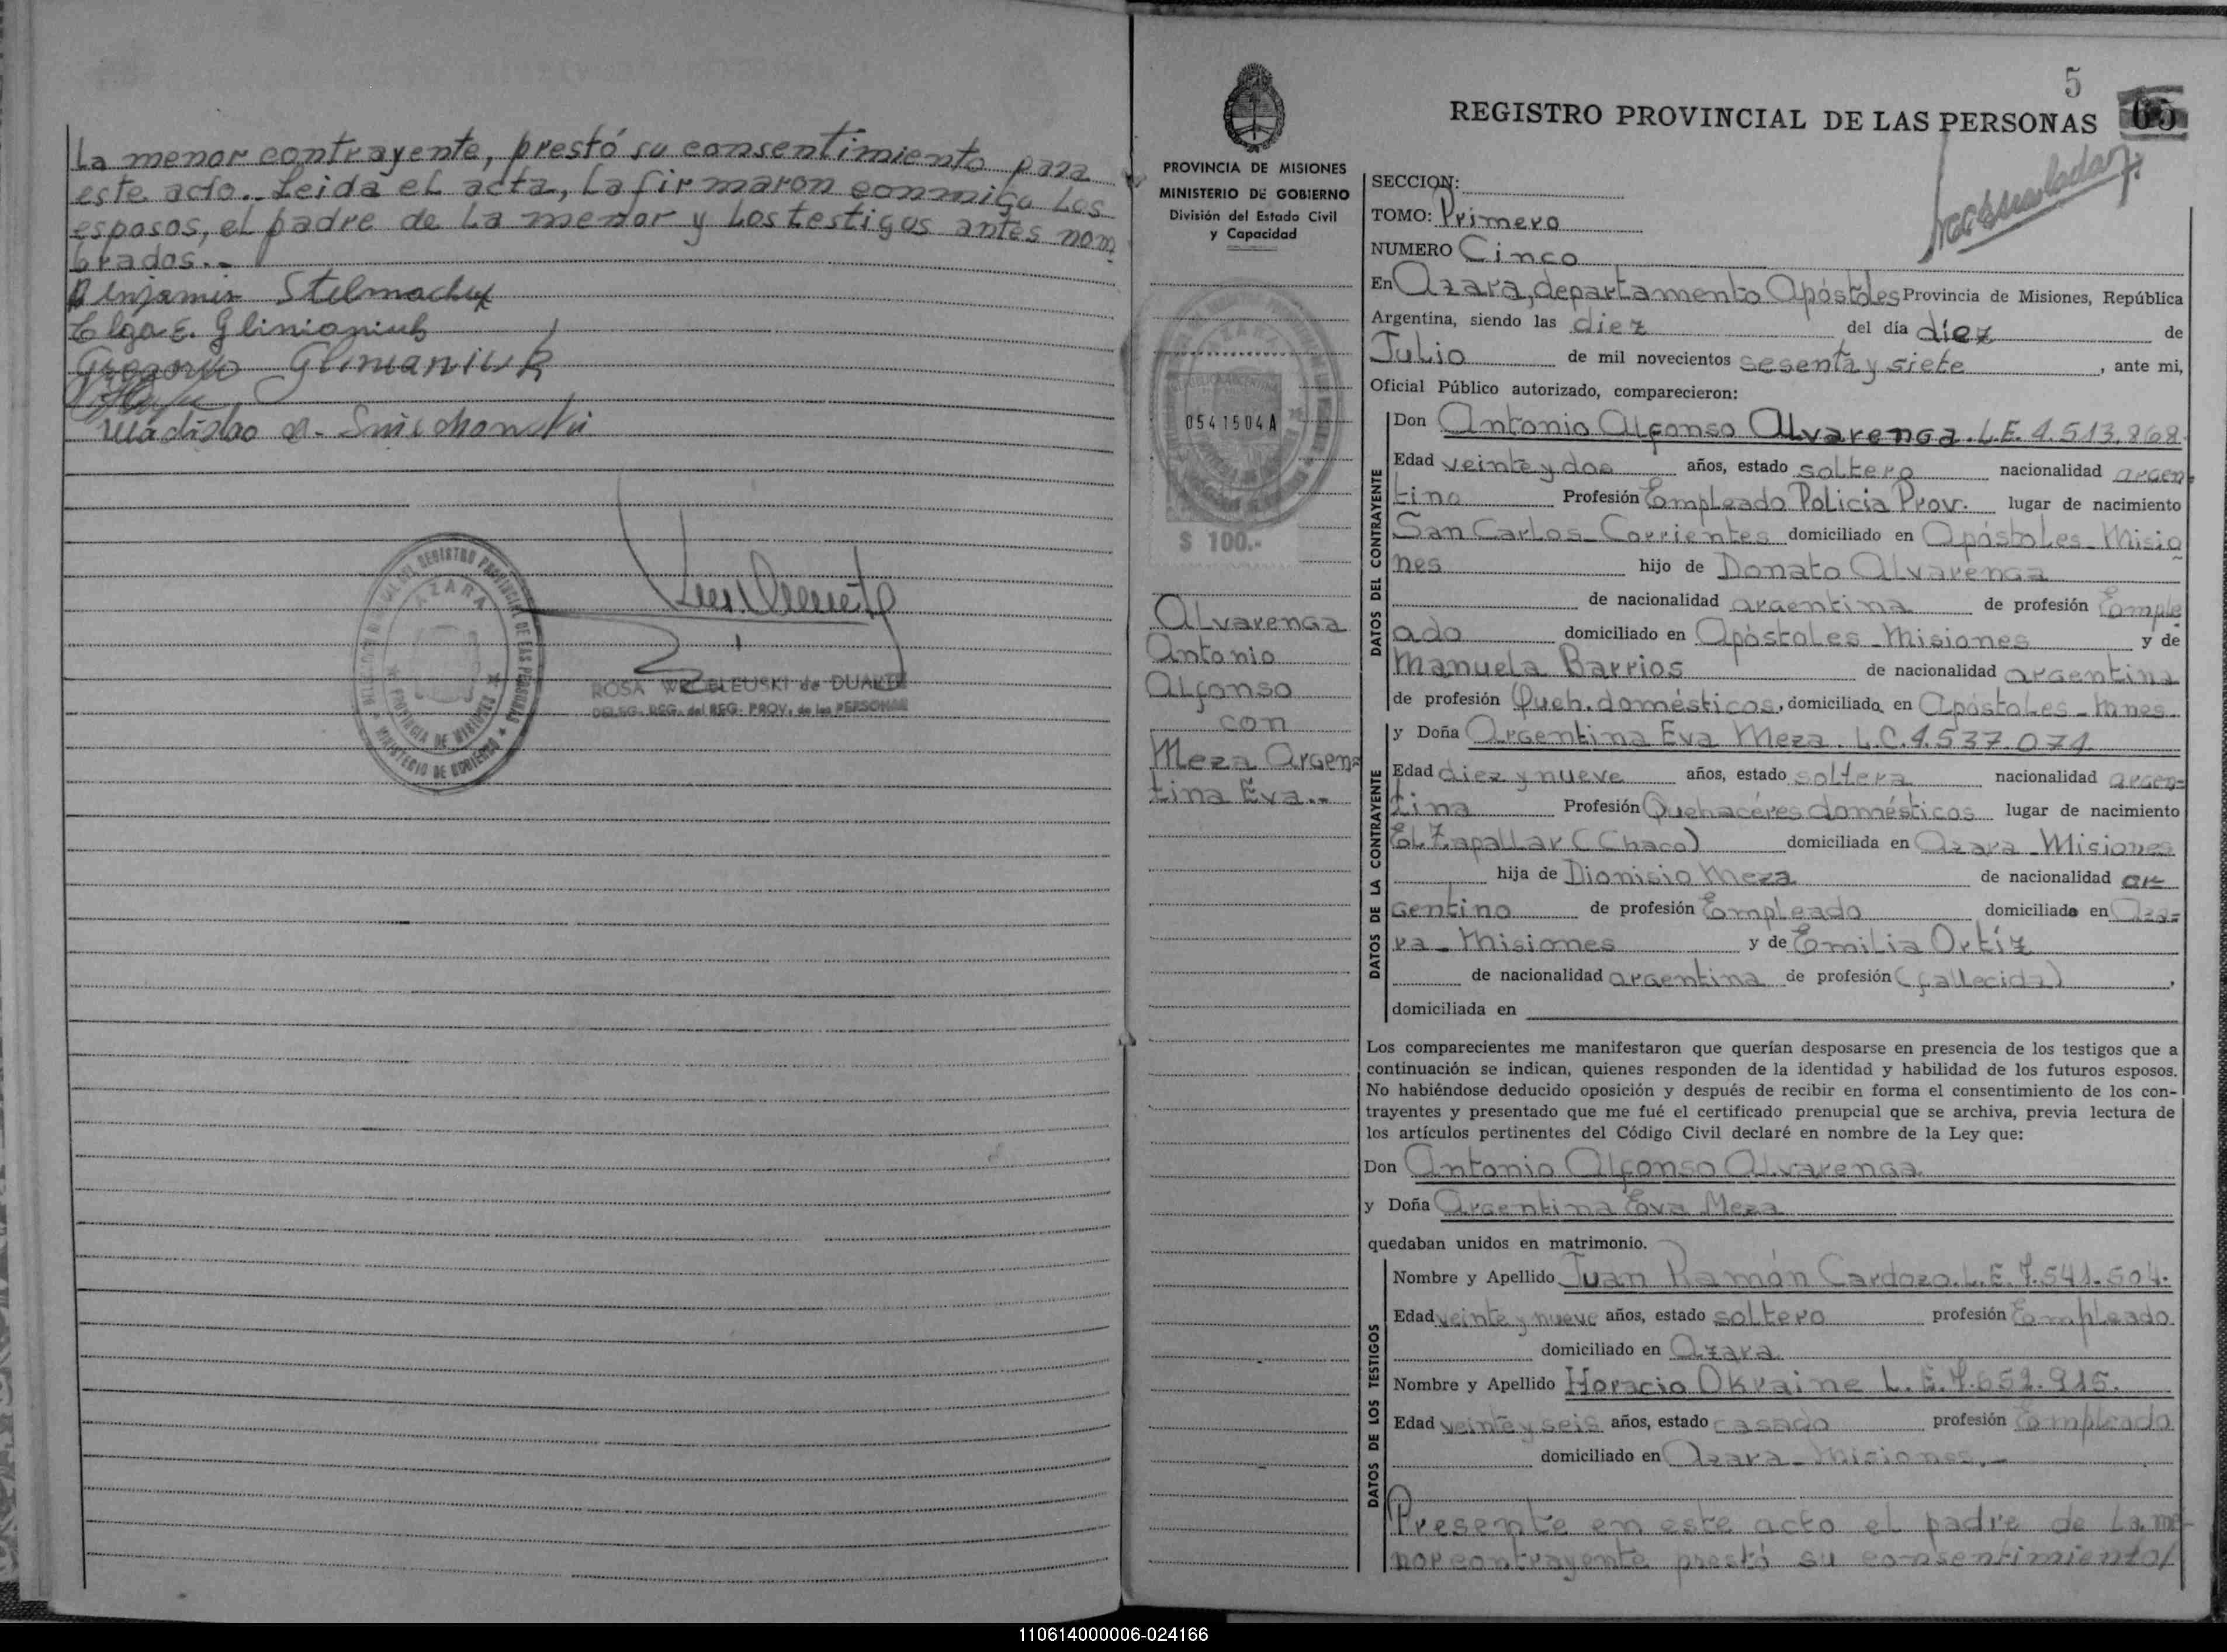 La menor contrayente, prestó su consentimiento para
este acto.- Leida el acta, la firmaron conmigo los
esposos, el padre de la menor y los testigos antes nom
brados.-
Benjamin Stelmachuk
Elga E. Glinianiuk
Gregorio Glinianiuk
REGISTRO PROVINCIAL DE LAS PERSONAS
AZARA
PROVINCIA DE MISIONES
MINISTERIO DE GOBIERNO
ROSA de DUARTE
DELEG. REG. del REG. PROV. de las PERSONAS
5
REGISTRO PROVINCIAL DE LAS PERSONAS 65
PROVINCIA DE MISIONES
MINISTERIO DE GOBIERNO
División del Estado Civil
y Capacidad
AZARA
REPUBLICA ARGENTINA
0541504A
$ 100.-
Alvarenga
Antonio
Alfonso
con
Meza Argen
tina Eva.-
SECCION:
TOMO: Primero
NUMERO Cinco
En Azara, departamento Apóstoles Provincia de Misiones, República
Argentina, siendo las diez del día diez de
Julio de mil novecientos sesenta y siete, ante mi,
Oficial Público autorizado, comparecieron:
DATOS DEL CONTRAYENTE
Don Antonio Alfonso Alvarenga. L.E. 4.513.868.
Edad veinte y dos años, estado soltero nacionalidad argen
tino Profesión Empleado Policia Prov. lugar de nacimiento
San Carlos - Corrientes domiciliado en Apóstoles - Misio
nes hijo de Donato Alvarenga
de nacionalidad argentina de profesión Emple
ado domiciliado en Apóstoles - Misiones y de
Manuela Barrios de nacionalidad argentina
de profesión Queh. domésticos, domiciliada en Apóstoles - Mnes.
DATOS DE LA CONTRAYENTE
y Doña Argentina Eva Meza. L.C. 4.537.071
Edad diez y nueve años, estado soltera nacionalidad argen-
tina Profesión Quehacéres domésticos lugar de nacimiento
El Zapallar (Chaco) domiciliada en Azara - Misiones
hija de Dionisio Meza de nacionalidad ar
gentino de profesión Empleado domiciliado en Aza-
ra - Misiones y de Emilia Ortíz
de nacionalidad argentina de profesión (fallecida),
domiciliada en
Los comparecientes me manifestaron que querían desposarse en presencia de los testigos que a
continuación se indican, quienes responden de la identidad y habilidad de los futuros esposos.
No habiéndose deducido oposición y después de recibir en forma el consentimiento de los con-
trayentes y presentado que me fué el certificado prenupcial que se archiva, previa lectura de
los artículos pertinentes del Código Civil declaré en nombre de la Ley que:
Don Antonio Alfonso Alvarenga
y Doña Argentina Eva Meza
quedaban unidos en matrimonio.
DATOS DE LOS TESTIGOS
Nombre y Apellido Juan Ramón Cardozo. L.E. 7.541.504.
Edad veinte y nueve años, estado soltero profesión Empleado
domiciliado en Azara
Nombre y Apellido Horacio Okraine L.E. 7.652.915.
Edad veinte y seis años, estado casado profesión Empleado
domiciliado en Azara - Misiones.-
Presente en este acto el padre de la me-
nor contrayente prestó su consentimiento/
110614000006-024166